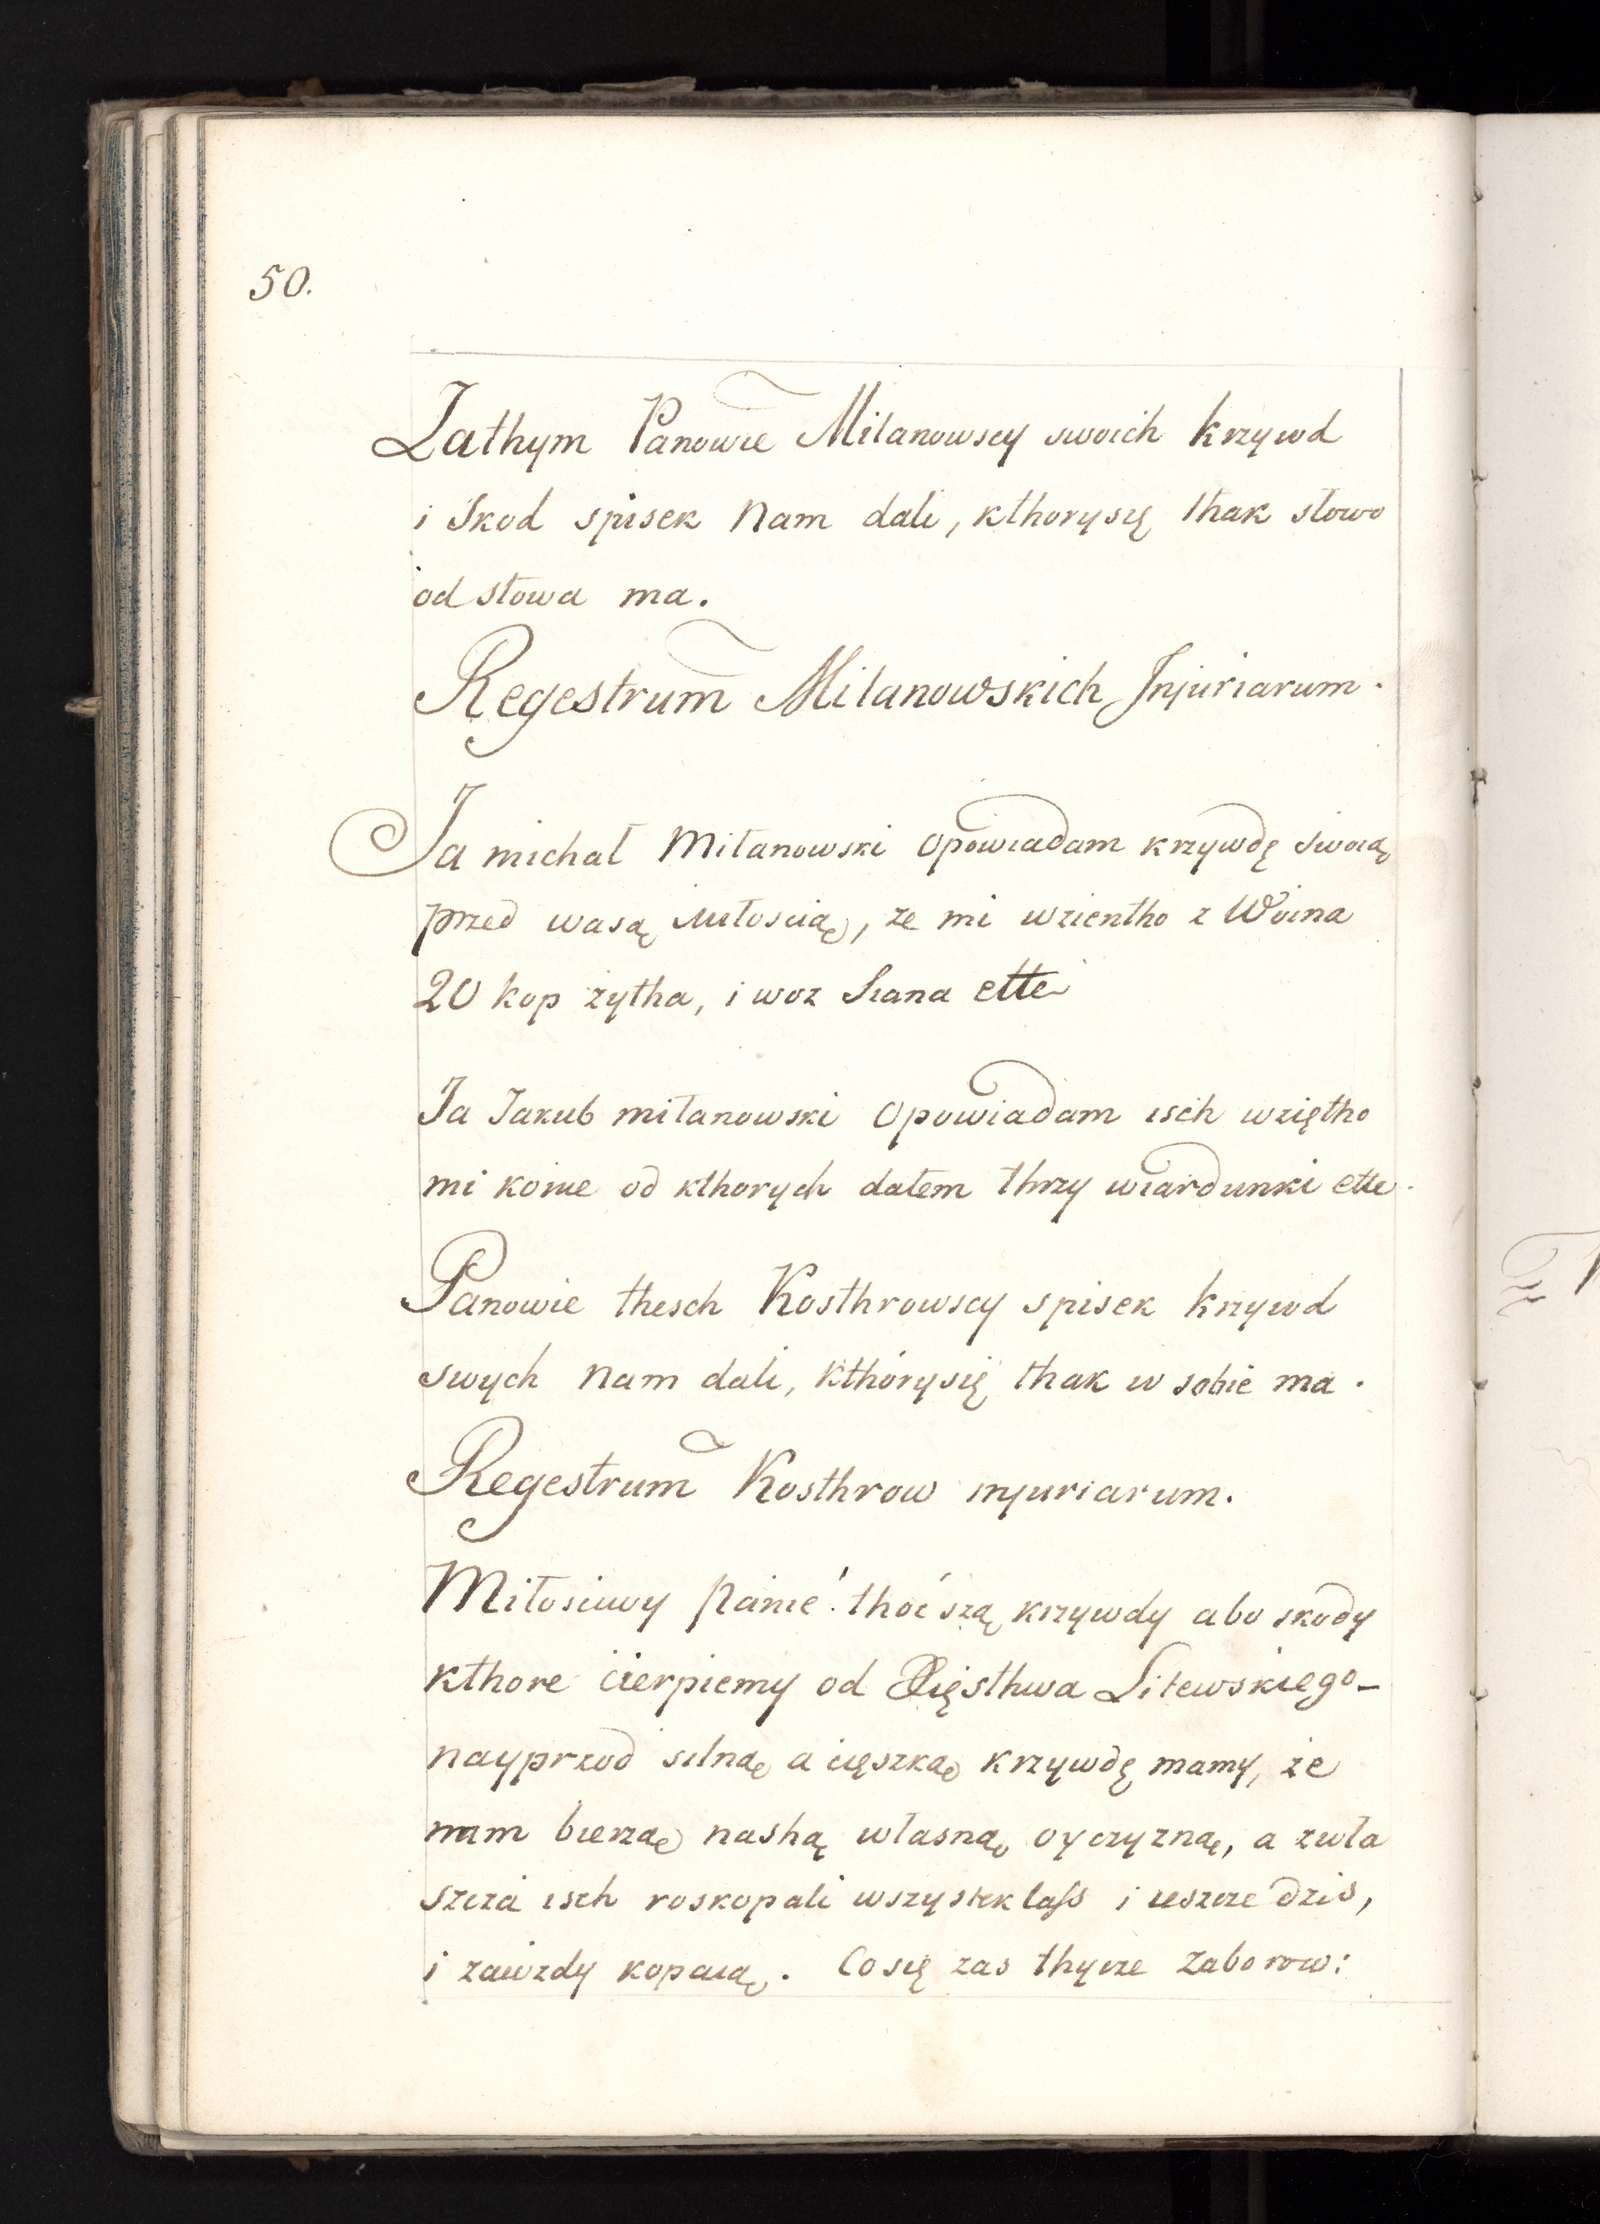 50.
Zathym Panowie Milanowscy swoich krzywd
i Skod spisek nam dali, kthorysię thak słowo
od słowa ma.
Regestrum Milanowskich Injuriarum.
Ja michał Miłanowski opowiadam krzywdę swoią
przed wasą Miłoscią, ze mi wzientho z Woina
20 kop żytha, i woz Siana ette
Ja Jakub miłanowski opowiadam isch wziętho
mi konie od kthorych dałem thrzy wiardunki ette.
Panowie thesch Kosthrowscy spisek krzywd
swych nam dali, kthórysię thak w sobie ma.
Regestrum Kosthrow injuriarum.
Miłosciwy Panie! thoć szą krzywdy abo skody
kthore cierpiemy od Xięsthwa Litewskiego_
nayprzod silną a cięszką krzywdę mamy, że
nam bierzą nashą własną oyczyzną, a zwła
szcza isch roskopali wszysteklass i ieszcze dzis,
i zawzdy kopaią. Cosię zas thycze Zaborow: